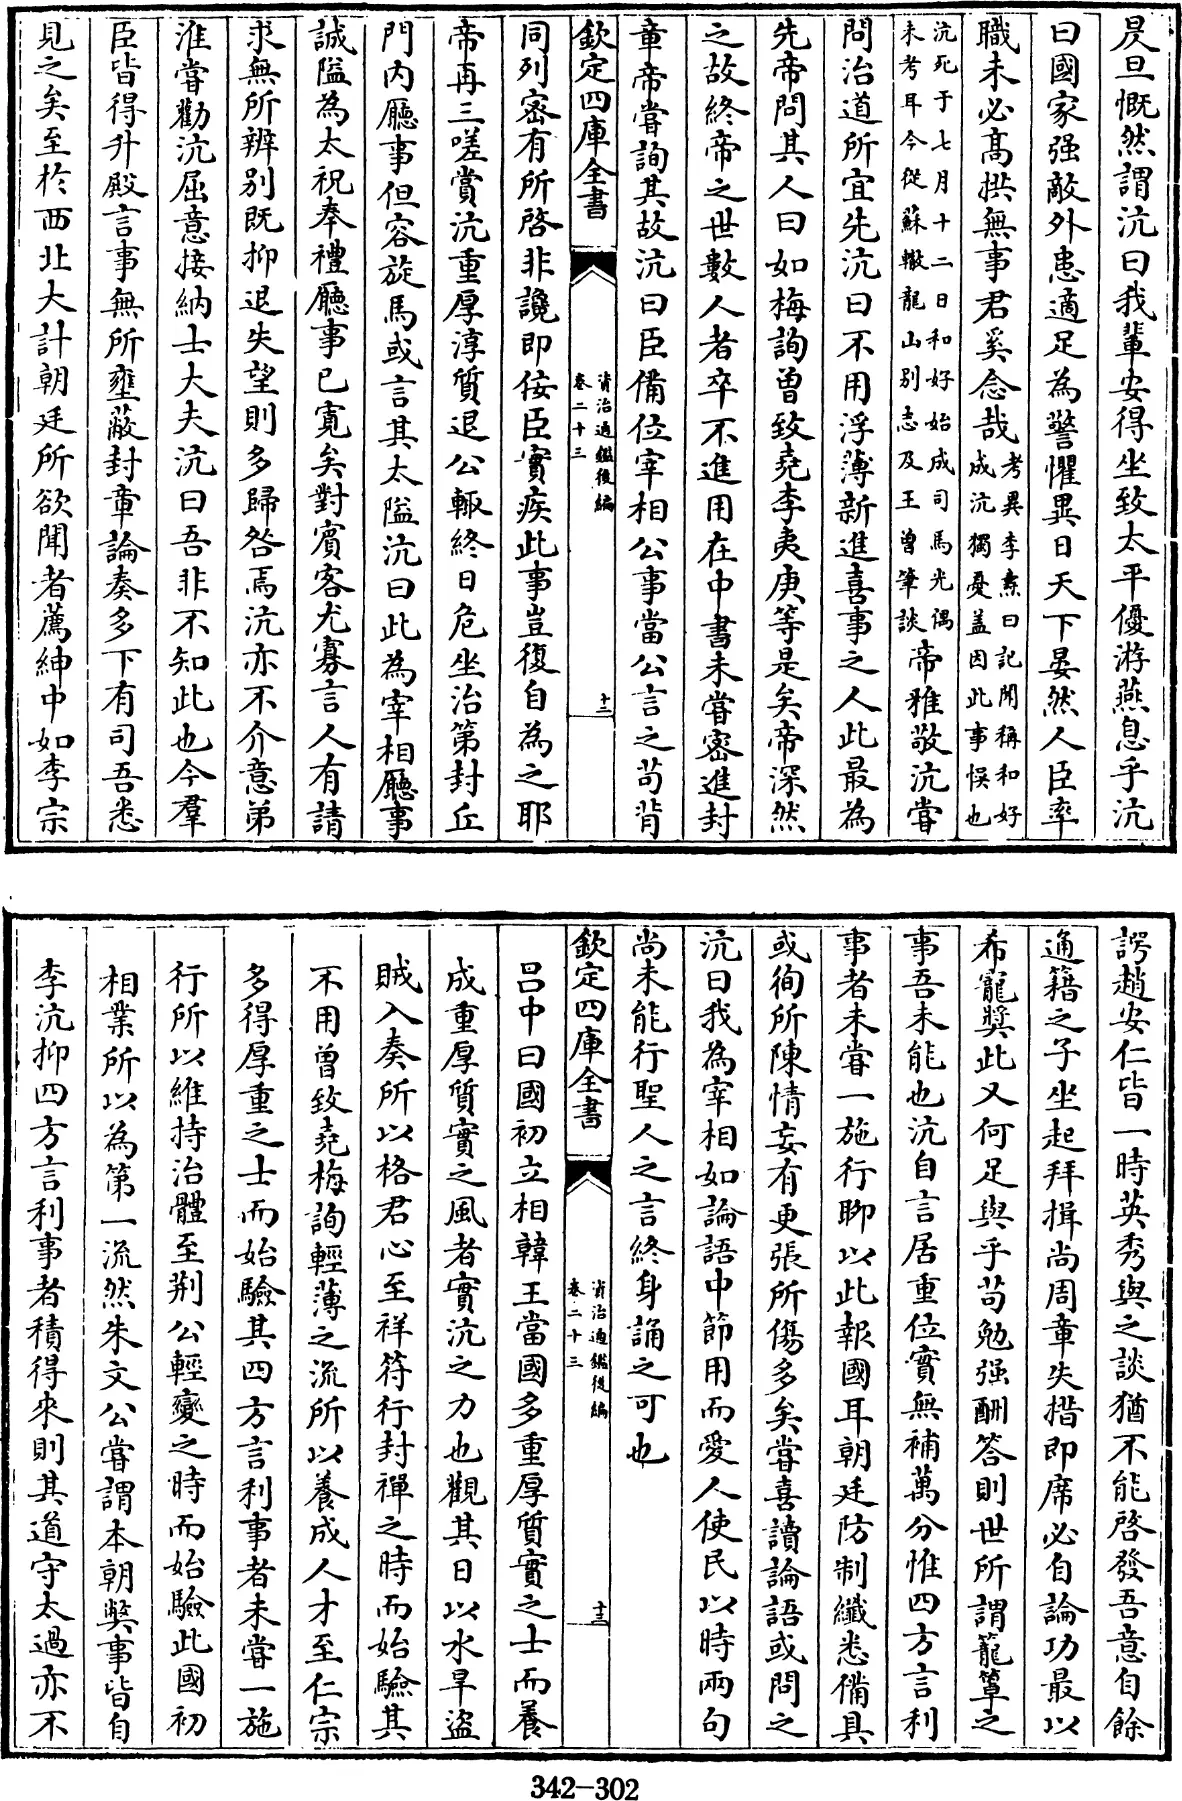 昃旦慨然謂沆曰我輩安得坐致太平優游燕息乎沆
曰國家强敵外患適足為警懼異日天下晏然人臣率
職未必髙拱無事君奚念哉考異李燾曰記聞稱和好成沆獨憂盖因此事悞也
沆死于七月十二日和好始成司馬光偶未考耳今從蘇轍龍山别志及王曾筆談帝雅敬沆嘗
問治道所宜先沆曰不用浮薄新進喜事之人此最為
先帝問其人曰如梅詢曾致堯李夷庚等是矣帝深然
之故終帝之世數人者卒不進用在中書未嘗密進封
章帝嘗詢其故沆曰臣備位宰相公事當公言之茍背
欽定四庫全書
資治通鑑後編
卷二十三
十二
同列密有所啓非讒即佞臣實疾此事豈復自為之耶
帝再三嗟賞沆重厚淳質退公輒終日危坐治第封丘
門内廳事但容旋馬或言其太隘沆曰此為宰相廳事
誠隘為太祝奉禮廳事已寛矣對賓客尤寡言人有請
求無所辨别既抑退失望則多歸咎焉沆亦不介意弟
淮嘗勸沆屈意接納士大夫沆曰吾非不知此也今羣
臣皆得升殿言事無所壅蔽封章論奏多下有司吾悉
見之矣至於西北大計朝廷所欲聞者薦紳中如李宗
諤趙安仁皆一時英秀與之談猶不能啓發吾意自餘
通籍之子坐起拜揖尚周章失措即席必自論功最以
希寵奬此又何足與乎茍勉强酬答則世所謂籠罩之
事吾未能也沆自言居重位實無補萬分惟四方言利
事者未嘗一施行聊以此報國耳朝廷防制纖悉備具
或徇所陳情妄有更張所傷多矣嘗喜讀論語或問之
沆曰我為宰相如論語中節用而愛人使民以時兩句
尚未能行聖人之言終身誦之可也
欽定四庫全書
資治通鑑後編
卷二十三
十三
吕中曰國初立相韓王當國多重厚質實之士而養
成重厚質實之風者實沆之力也觀其日以水旱盜
賊入奏所以格君心至祥符行封禪之時而始驗其
不用曾致堯梅詢輕薄之流所以養成人才至仁宗
多得厚重之士而始驗其四方言利事者未嘗一施
行所以維持治體至荆公輕變之時而始驗此國初
相業所以為第一流然朱文公嘗謂本朝獘事皆自
李沆抑四方言利事者積得來則其道守太過亦不
342-302